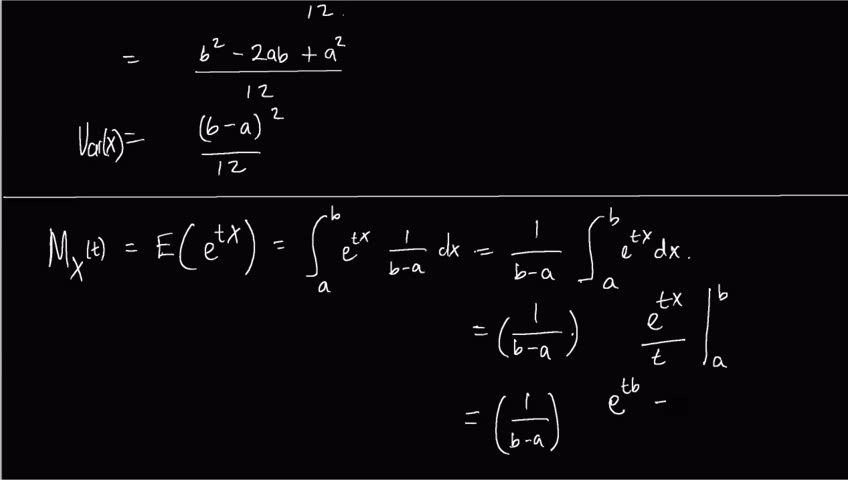 12.
= b² - 2ab + a² / 12
Var(X) = (b-a)² / 12
M_X(t) = E(e^{tX}) = ∫_a^b e^{tx} 1/(b-a) dx = 1/(b-a) ∫_a^b e^{tx} dx.
= (1/(b-a).) e^{tx}/t |_a^b
= (1/(b-a)) e^{tb} -